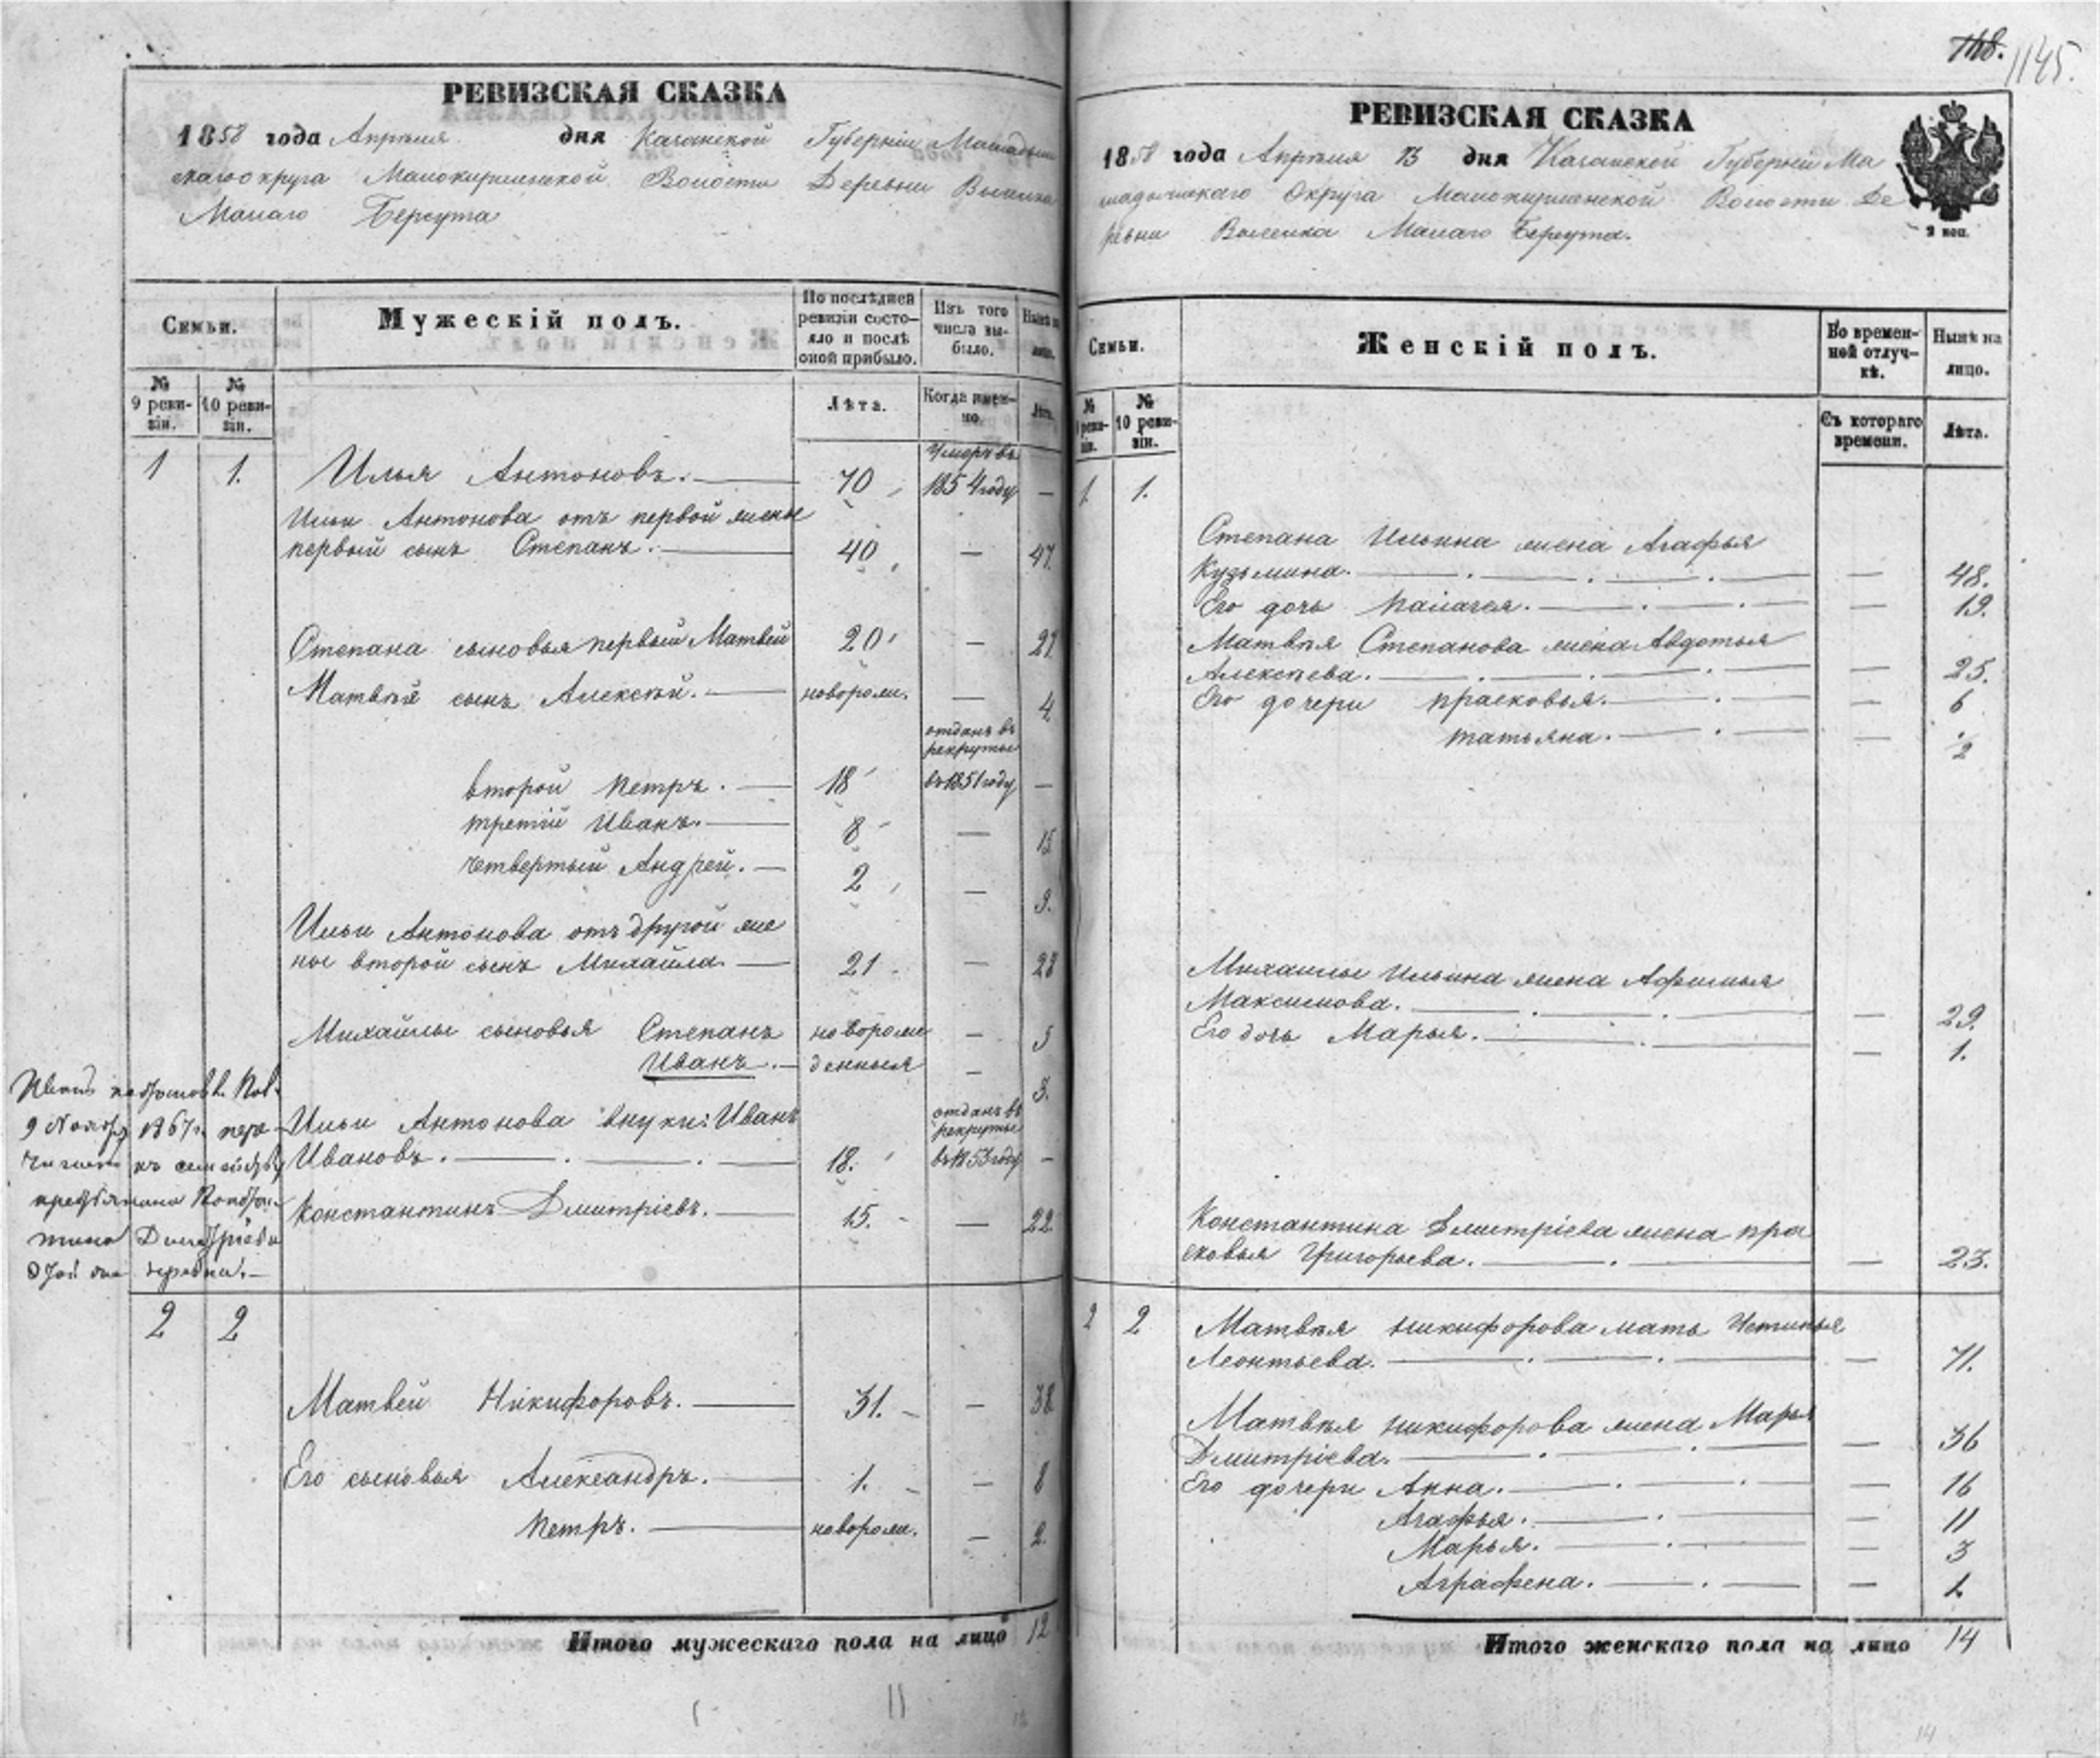 118. 1145.
РЕВИЗСКАЯ СКАЗКА
1858 года Апрѣля дня Казанской Губерніи Мамадыш
скаго округа Малокирменской Волости Деревни Выселка
Малаго Берсута
Семьи.
Мужескій полъ.
По послѣдней ревизіи состо-
яло и послѣ
оной прибыло.
Изъ того
числа вы-
было.
Нынѣ на
лицо.
№
9 реви-
зіи.
№
10 реви-
зіи.
Лѣта.
Когда имен-
но.
Лѣта.
1 1. Илья Антоновъ. 70 Умеръ въ
1854 году —
Ильи Антонова отъ первой жены
первый сынъ Степанъ. 40 — 47.
Степана сыновья первый Матвей 20 — 27
Матвѣя сынъ Алексѣй. оворож. — 4
второй Петръ. 18 отданъ въ
рекруты
въ 1851 году —
третій Иванъ. 8 — 15
четвертый Андрей. 2 — 9.
Ильи Антонова отъ другой же
ны второй сынъ Михайла 21 — 28
Михайлы сыновья Степанъ новорож — 5
Иванъ. денныя — 3.
Ильи Антонова внуки: Иванъ
Ивановъ. 18. отданъ въ
рекруты
въ 1853 году —
Константинъ Дмитріевъ. 15. — 22.
9 Ноября 1867 г. пере
численъ къ семейству
крестьянина Констан
тина Дмитріева
этой же деревни.
2 2
Матвей Никифоровъ. 31. — 38
Его сыновья Александръ. 1. — 8
Петръ. новорож. — 2.
Итого мужескаго пола на лицо 12
РЕВИЗСКАЯ СКАЗКА
1858 года Апрѣля 13 дня Казанской Губерніи Ма
мадышскаго Округа Малокирменской Волости Де
ревни Выселка Малаго Берсута.
Семьи.
Женскій полъ.
Во времен-
ной отлуч-
кѣ.
Нынѣ на
лицо.
№
9 реви-
зіи.
№
10 реви-
зіи.
Съ котораго
времени.
Лѣта.
1. 1.
Степана Ильина жена Агафья
Кузьмина. — 48.
Его дочь Палагея. — 19.
Матвѣя Степанова жена Авдотья
Алексѣева. — 25.
Его дочери Прасковья. — 6
Татьяна. — 2
Михайлы Ильина жена Афимья
Максимова. — 29.
Его дочь Марья. — 1.
Константина Дмитріева жена Пра
сковья Григорьева. — 23.
2 2 Матвѣя Никифорова мать Устинья
Леонтьева. — 71.
Матвѣя Никифорова жена Марья
Дмитріева. — 36
Его дочери Анна. — 16
Агафья. — 11
Марья. — 3
Аграфена. — 1
Итого женскаго пола на лицо 14